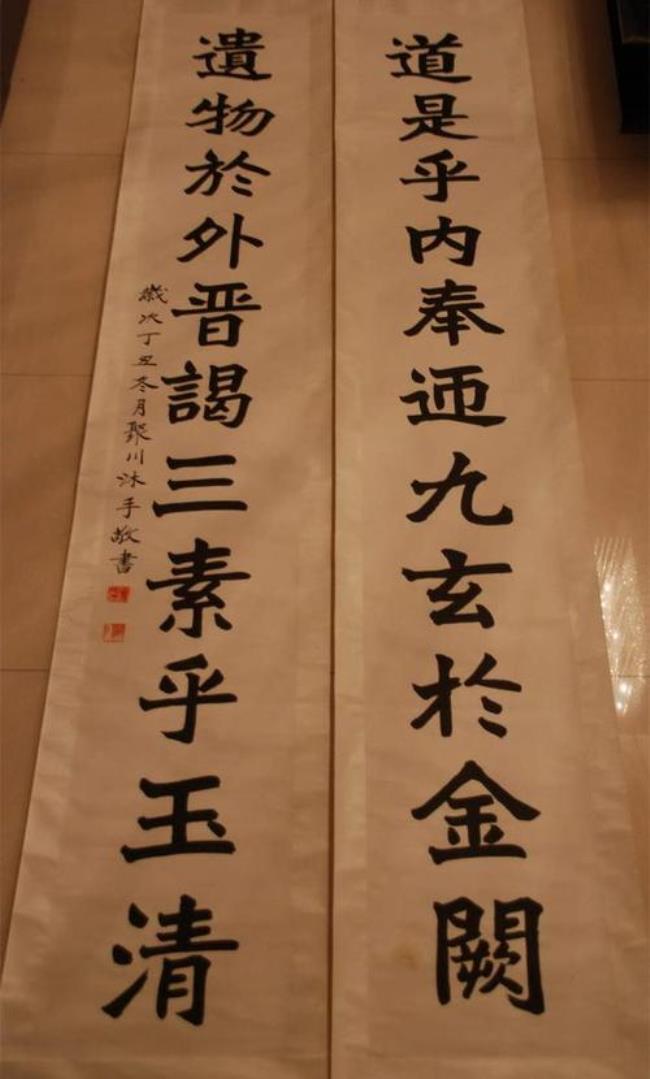 道是乎内奉迊九玄於金闕
遺物於外晋謁三素乎玉清
歲次丁丑冬月聚川沐手敬書